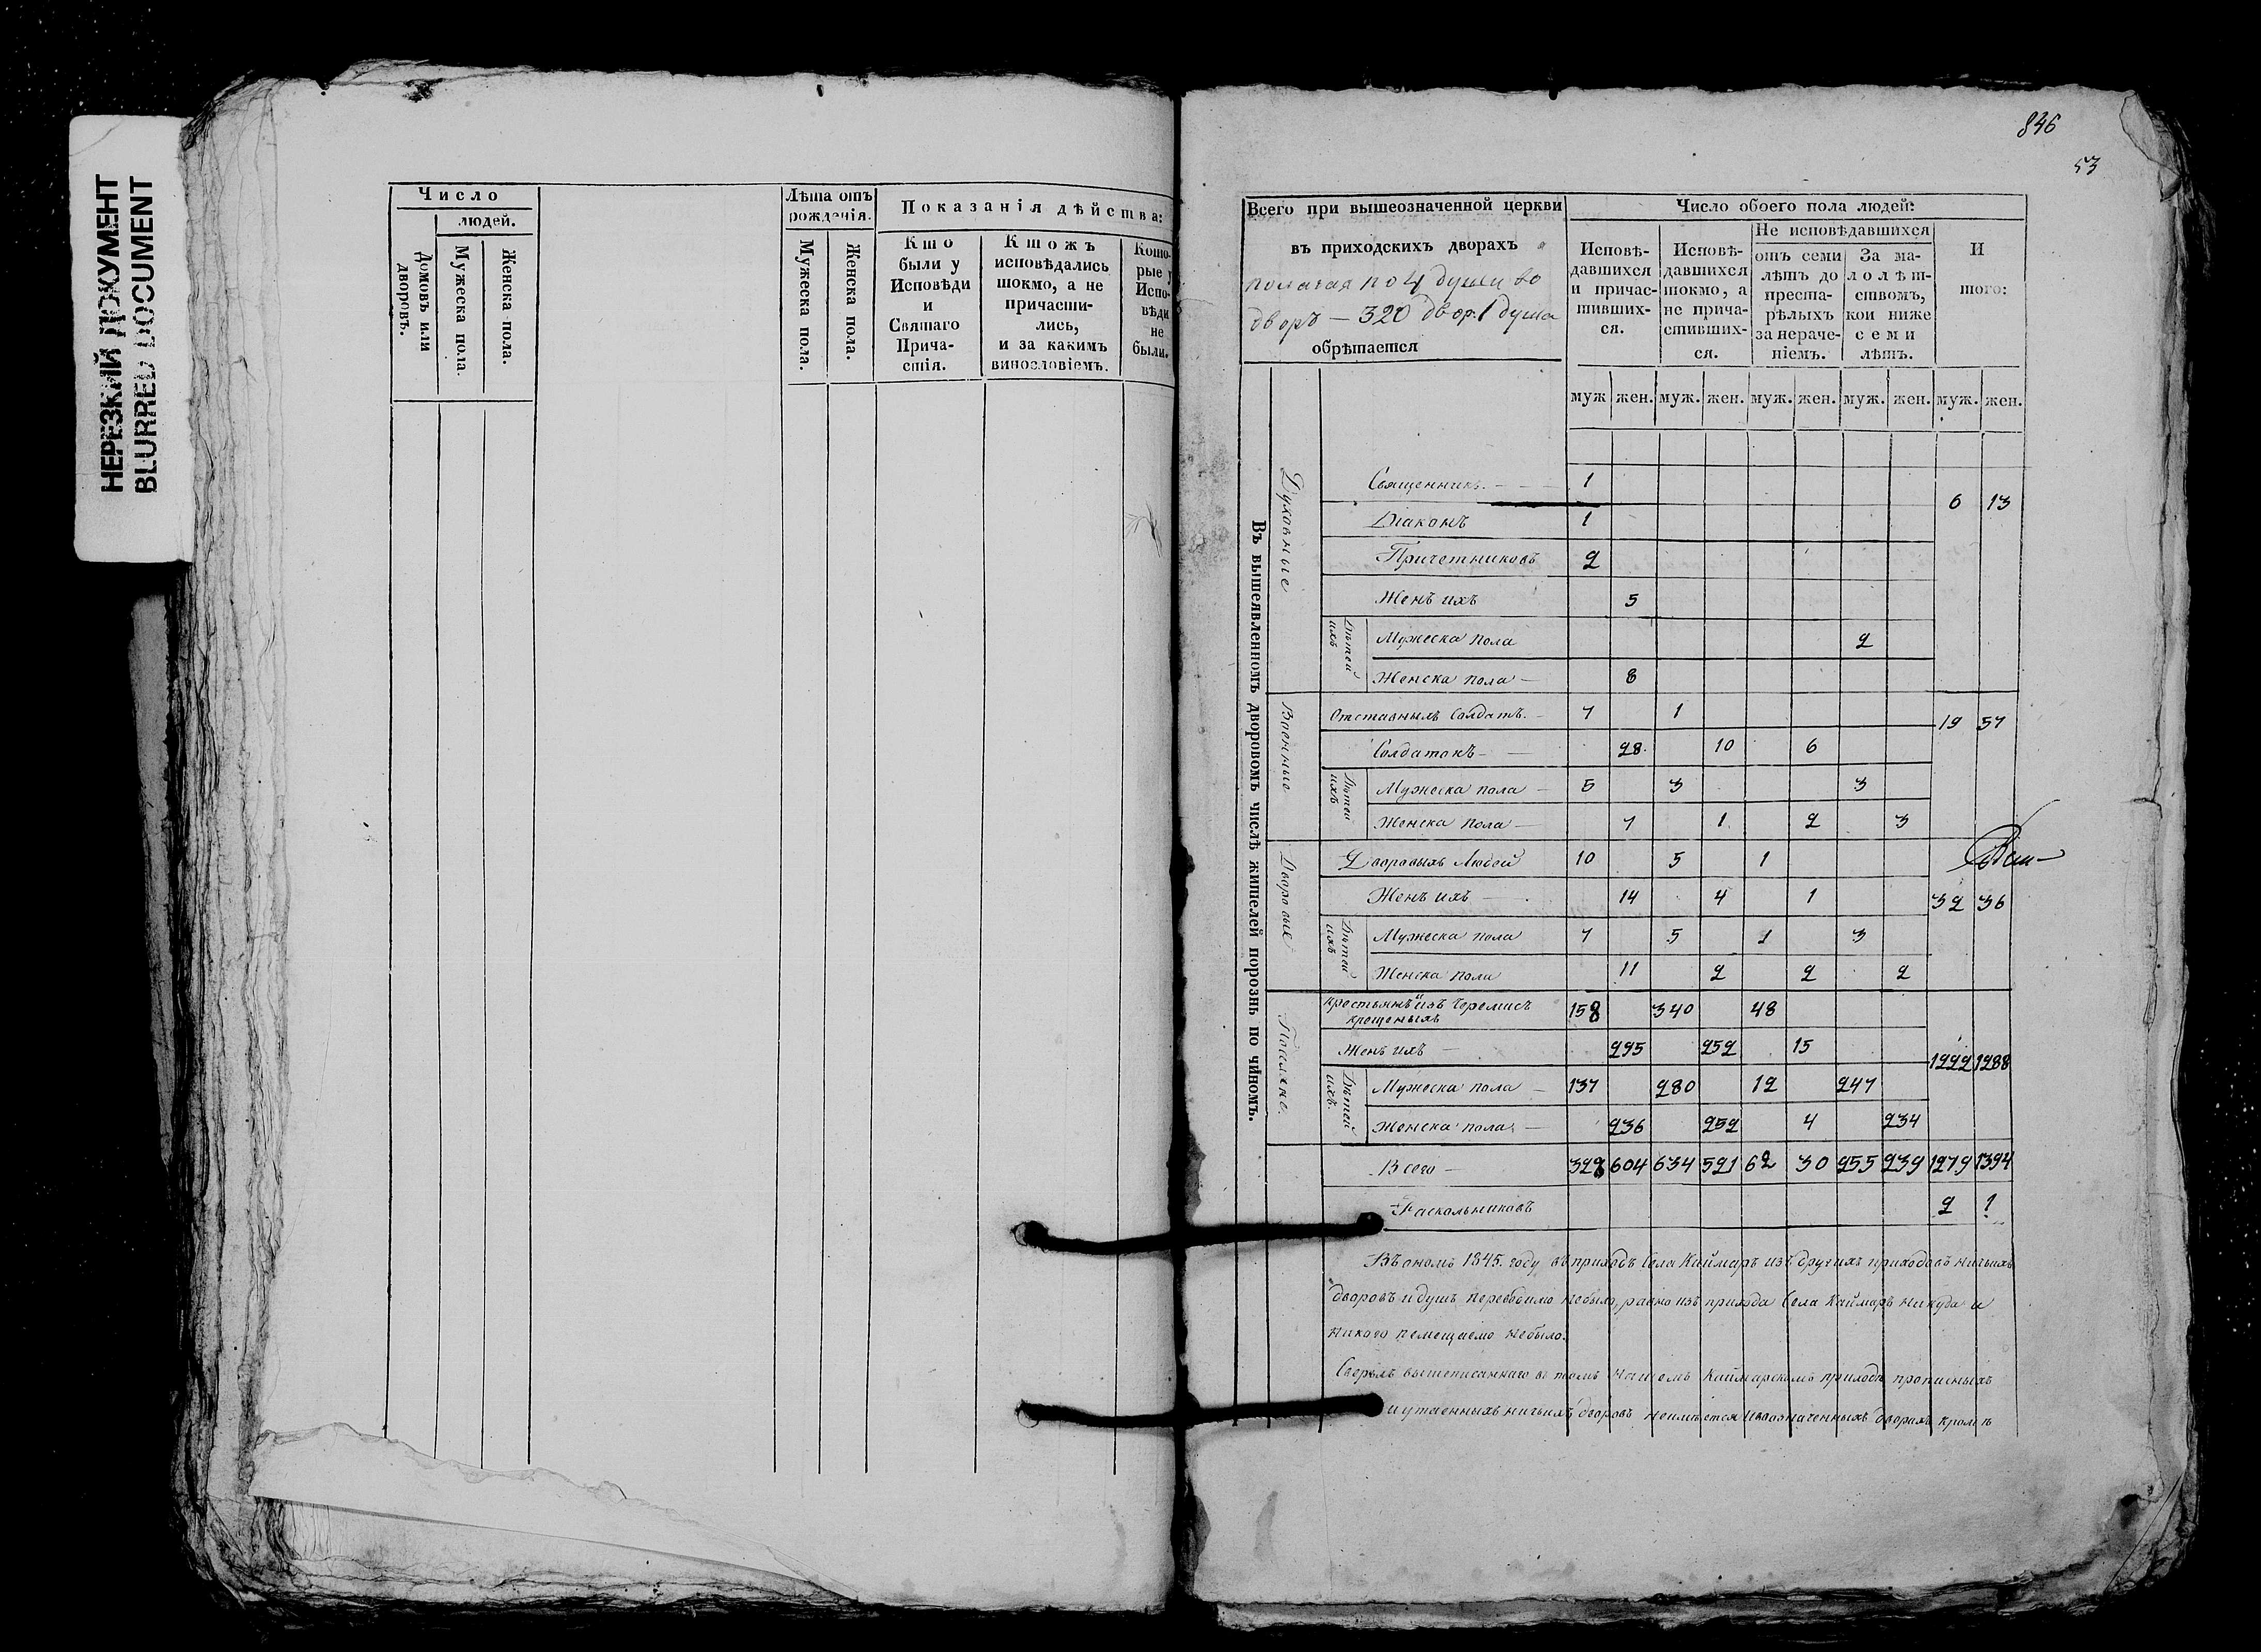 НЕРЕЗКИЙ ДОКУМЕНТ
BLURRED DOCUMENT
Число
людей.
Домовъ или дворовъ.
Мужеска пола.
Женска пола.
Лѣта отъ
рожденія.
Мужеска пола.
Женска пола.
Показанія дѣйства:
Кто
были у
Исповѣди
и
Святаго
Прича-
стія.
Ктожъ
исповѣдались
токмо, а не
причасти-
лись,
и за какимъ
винословіемъ.
Кото-
рые у
Испо-
вѣди
не
были.
846
53
Всего при вышеозначенной церкви
въ приходскихъ дворахъ
полагая по 4 души во
дворъ — 320 двор. 1 душа
обрѣтается
Число обоего пола людей:
Исповѣ-
давшихся
и причас-
тивших-
ся.
Исповѣ-
давшихся
токмо, а
не прича-
стивших-
ся.
Не исповѣдавшихся
отъ семи
лѣтъ до
преста-
рѣлыхъ
за нераче-
ніемъ.
За ма-
лолѣт-
ствомъ,
кои ниже
семи
лѣтъ.
И
того:
муж жен. муж. жен. муж. жен. муж. жен. муж. жен.
Въ вышеявленномъ дворовомъ числѣ жителей порознь по чиномъ.
Духовные
Священникъ. 1
6 13
Діаконъ 1
Причетниковъ 2
Женъ ихъ 5
Дѣтей ихъ
Мужеска пола 2
Женска пола 8
Военные
Отставныхъ Солдатъ. 7 1
19 57
Солдатокъ 28. 10 6
Дѣтей ихъ
Мужеска пола 5 3 3
Женска пола 7 1. 2 3
Дворовые
Дворовыхъ Людей 10 5 1
Женъ ихъ 14 4 1
32 36
Дѣтей ихъ
Мужеска пола 7 5 1 3
Женска пола 11 2 2 2
Поселяне.
Крестьянъ изъ Черемисъ
крещеныхъ 158 340 48
Женъ ихъ 295 252 15
1222 1288
Дѣтей ихъ.
Мужеска пола 137 280 12 247
Женска пола 236 252 4 234
Всего 328 604 634 521 62 30 255 239 1279 1394
Раскольниковъ 2 1
Въ ономъ 1845. году въ приходъ Села Каймаръ изъ другихъ приходовъ ничьихъ
дворовъ и душъ переводимо небыло, равно изъ прихода Села Каймаръ никуда и
никого помещаемо небыло.
Сверхъ вышеписаннаго въ томъ нашемъ Каймарскомъ приходѣ прописныхъ
и утаенныхъ ничьихъ дворовъ неимѣется и въ означенныхъ дворахъ кромѣ